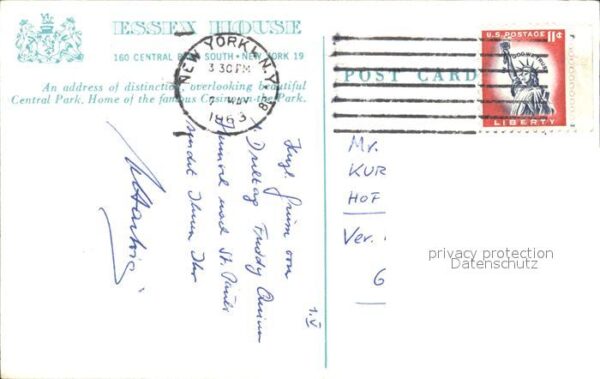 ESSEX HOUSE
160 CENTRAL PARK SOUTH · NEW YORK 19
An address of distinction, overlooking beautiful
Central Park. Home of the famous Casino-on-the-Park.
NEW YORK, N.Y.
3 30 PM
1963
POST CARD
U.S. POSTAGE 11¢
IN GOD WE TRUST
LIBERTY
1.V
Drehtag Freddy Quinn
nach St. Pauli
sendet Ihnen Ihr
Mr.
KUR
HOF
Ver.
G
privacy protection
Datenschutz